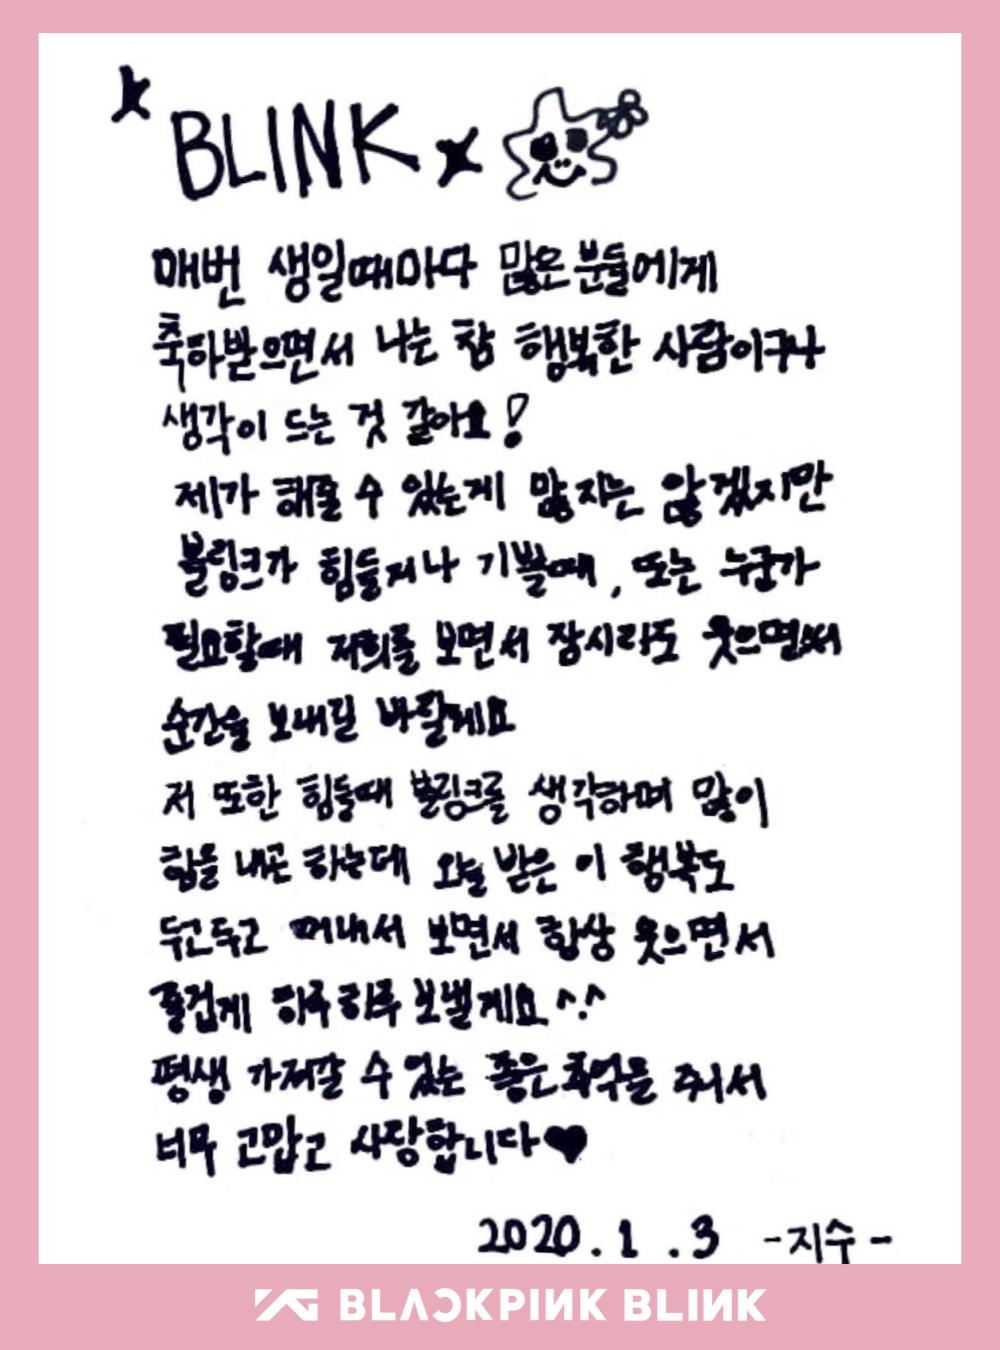 BLINK
매번 생일때마다 많은분들에게
축하받으면서 나는 참 행복한 사람이구나
생각이 드는 것 같아요!
제가 해줄 수 있는게 많지는 않겠지만
블링크가 힘들거나 기쁠때, 또는 누군가
필요할때 저희를 보면서 잠시라도 웃으면서
순간을 보내길 바랄게요
저 또한 힘들때 블링크를 생각하며 많이
힘을 내곤 하는데 오늘 받은 이 행복도
두고두고 꺼내서 보면서 항상 웃으면서
즐겁게 하루하루 보낼게요 ^.^
평생 가져갈 수 있는 좋은 추억을 줘서
너무 고맙고 사랑합니다♥
2020.1.3 -지수-
YG BLACKPINK BLINK